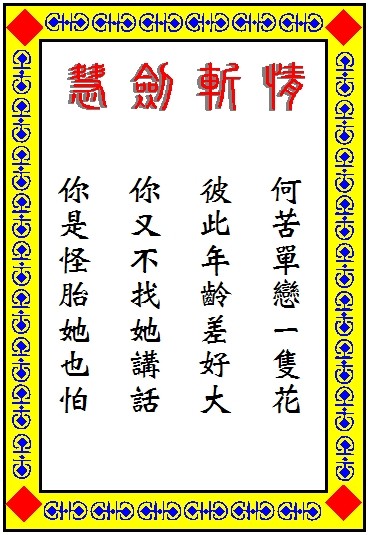 慧劍斬情
何苦單戀一隻花
彼此年齡差好大
你又不找她講話
你是怪胎她也怕